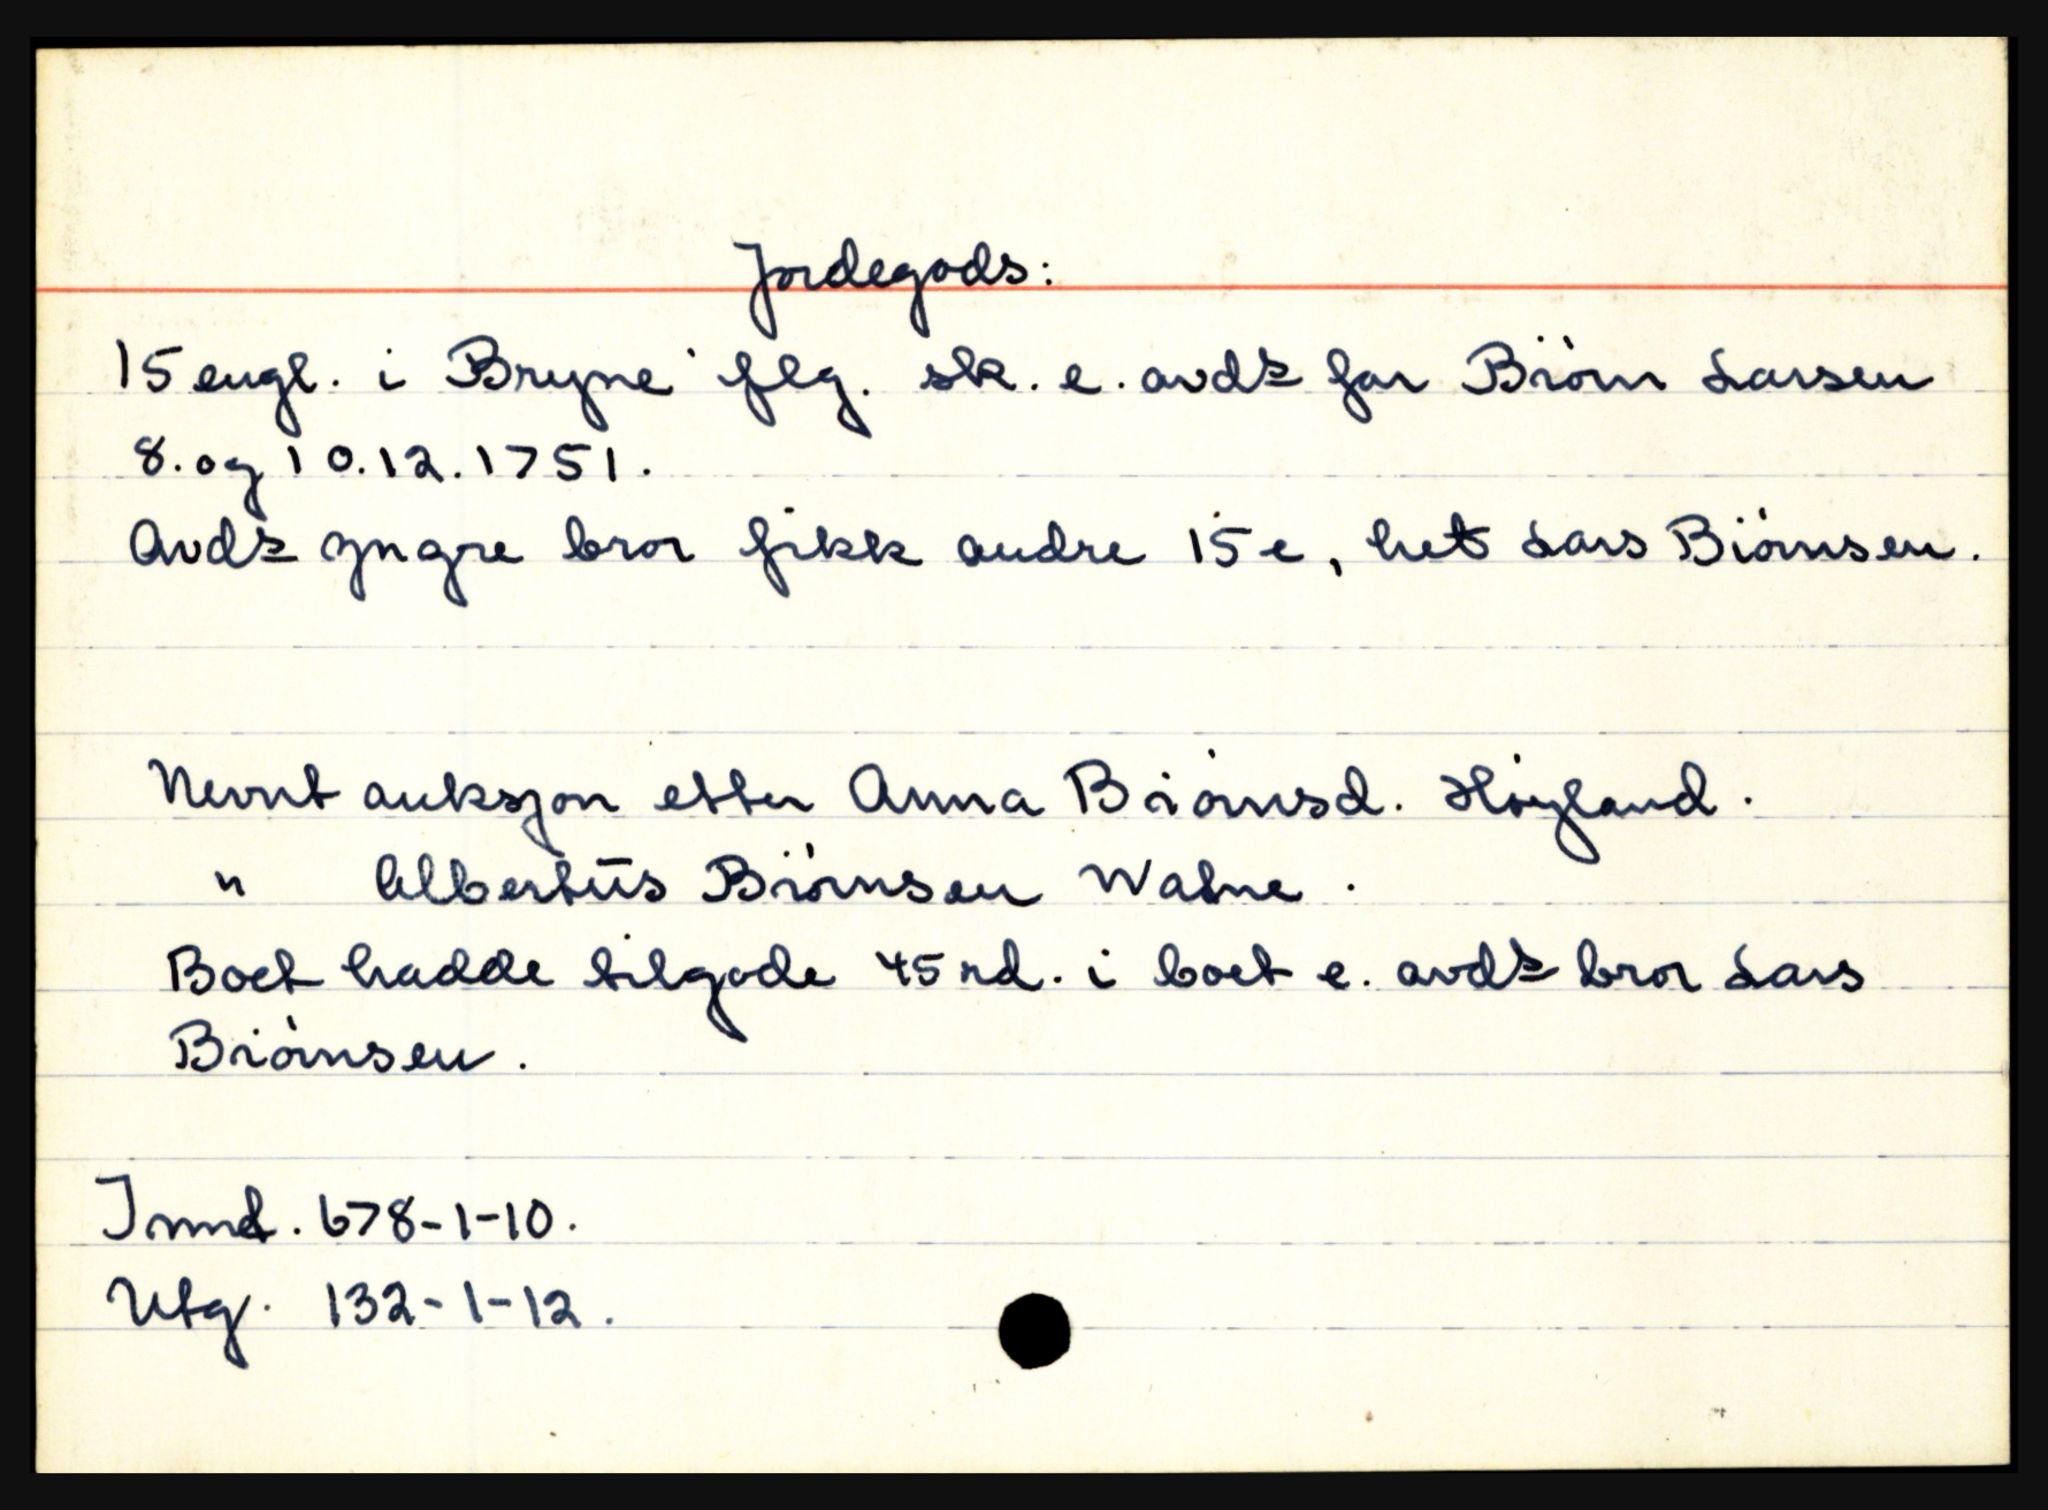 Jordegods:
15 engl. i Bryne flg. sk. e. avds far Biørn Larsen
8. og 10.12.1751.
Avds yngre bror fikk andre 15 e, het Lars Biørnsen.
Nevnt auksjon etter Anna Biørnsd. Høyland.
" Albertus Biørnsen Watne.
Boet hadde tilgode 45 rd. i boet e. avds bror Lars
Biørnsen.
Innt. 678-1-10.
Utg. 132-1-12.